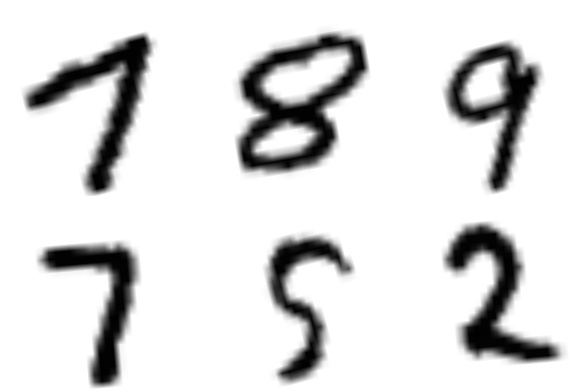 789
752